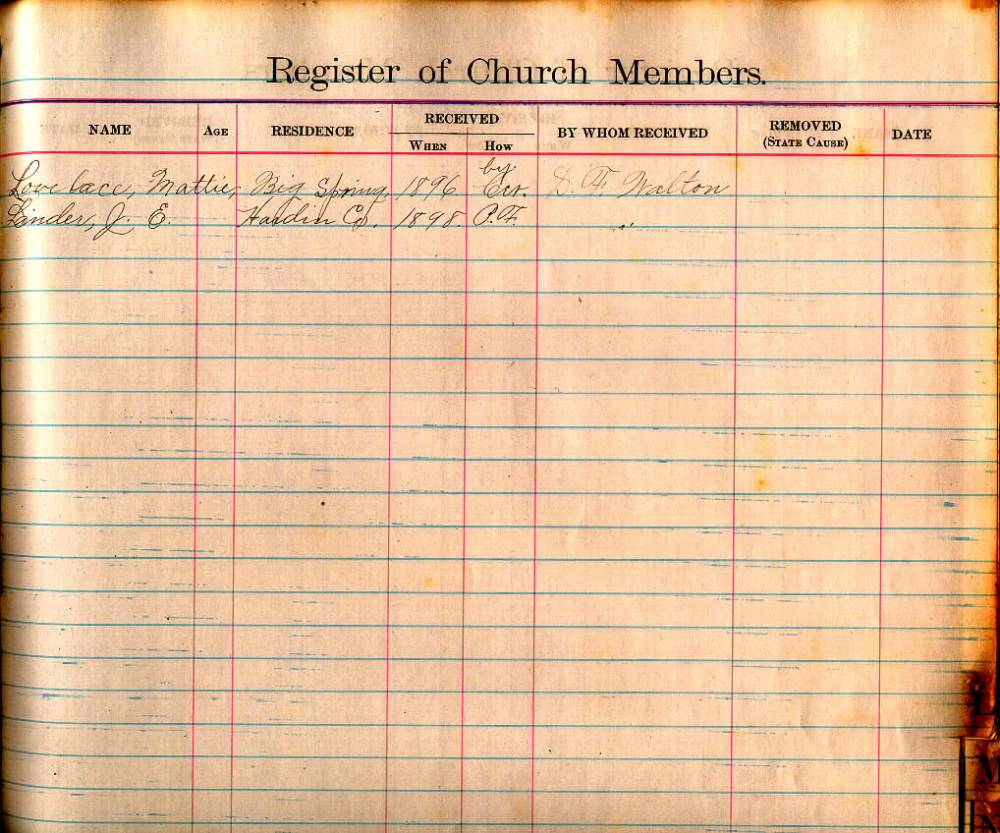 Register of Church Members.
NAME AGE RESIDENCE RECEIVED BY WHOM RECEIVED REMOVED DATE
WHEN HOW (STATE CAUSE)
by
Lovelace, Mattie, Big Spring 1896 Cer. D. F. Walton
Linder, J. E. Hardin Co. 1898. P.F. "